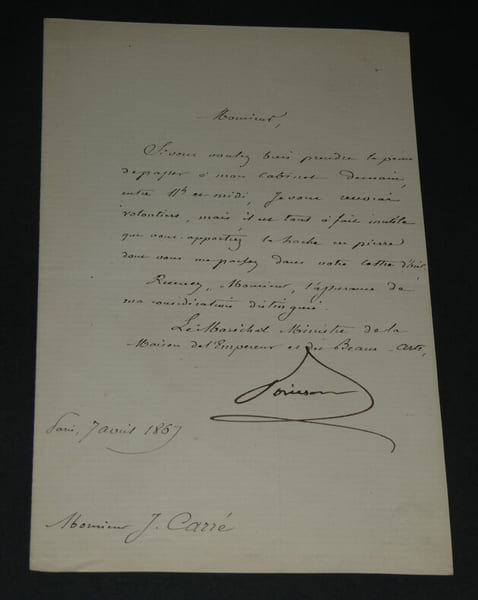 Monsieur,
Si vous voulez bien prendre la peine
de passer à mon Cabinet demain,
entre 11h et midi, Je vous recevrai
volontiers, mais il est tout à fait inutile
que vous apportiez la hache en pierre
dont vous me parlez dans votre lettre d'hier.
Recevez, Monsieur, l'assurance de
ma considération distinguée.
Le Maréchal Ministre de la
Maison de l'Empereur et des Beaux-Arts,
Paris, 7 avril 1867
Monsieur J. Carré